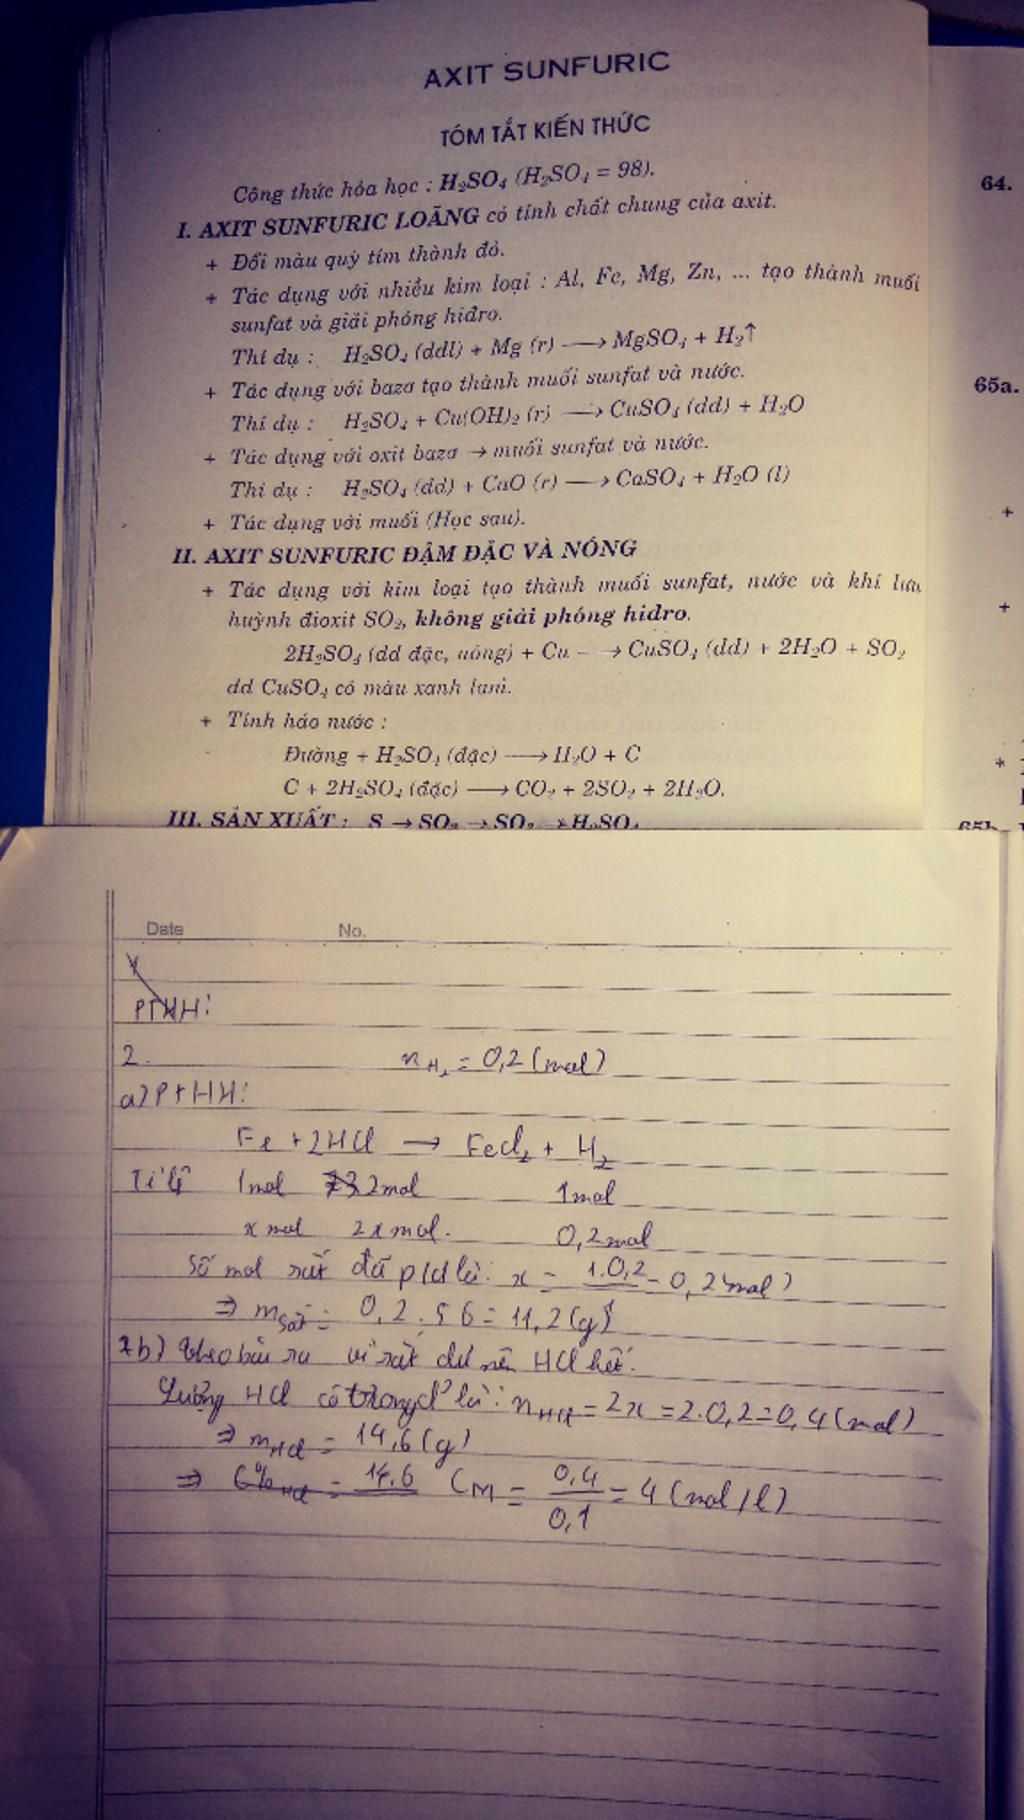 AXIT SUNFURIC
TÓM TẮT KIẾN THỨC
Công thức hóa học : H₂SO₄ (H₂SO₄ = 98).
64.
I. AXIT SUNFURIC LOÃNG có tính chất chung của axit.
+ Đổi màu quỳ tím thành đỏ.
+ Tác dụng với nhiều kim loại : Al, Fe, Mg, Zn, ... tạo thành muối
sunfat và giải phóng hiđro.
Thí dụ : H₂SO₄ (ddl) + Mg (r) → MgSO₄ + H₂↑
65a.
+ Tác dụng với bazơ tạo thành muối sunfat và nước.
Thí dụ : H₂SO₄ + Cu(OH)₂ (r) → CuSO₄ (dd) + H₂O
+ Tác dụng với oxit bazơ → muối sunfat và nước.
Thí dụ : H₂SO₄ (dd) + CaO (r) → CaSO₄ + H₂O (l)
+ Tác dụng với muối (Học sau).
+
II. AXIT SUNFURIC ĐẬM ĐẶC VÀ NÓNG
+ Tác dụng với kim loại tạo thành muối sunfat, nước và khí lưu
+
huỳnh đioxit SO₂, không giải phóng hiđro.
2H₂SO₄ (dd đặc, nóng) + Cu → CuSO₄ (dd) + 2H₂O + SO₂
dd CuSO₄ có màu xanh lam.
+ Tính háo nước :
Đường + H₂SO₄ (đặc) → H₂O + C
*
C + 2H₂SO₄ (đặc) → CO₂ + 2SO₂ + 2H₂O.
III. SẢN XUẤT : S → SO₂ → SO₃ → H₂SO₄
65b.
Date No.
PTHH:
2. n H₂ = 0,2 (mol)
a) PTHH:
Fe + 2HCl → FeCl₂ + H₂
Tỉ lệ 1mol 2mol 1mol
x mol 2x mol. 0,2mol
Số mol sắt đã p/ứ là: x = 1.0,2 = 0,2(mol)
⇒ m sắt = 0,2 . 56 = 11,2 (g)
2b) Theo bài ra vì sắt dư nên HCl hết.
Lượng HCl có trong d² là: n HCl = 2x = 2.0,2 = 0,4 (mol)
⇒ m HCl = 14,6 (g)
⇒ C% HCl = 14,6 CM = 0,4 / 0,1 = 4 (mol/l)